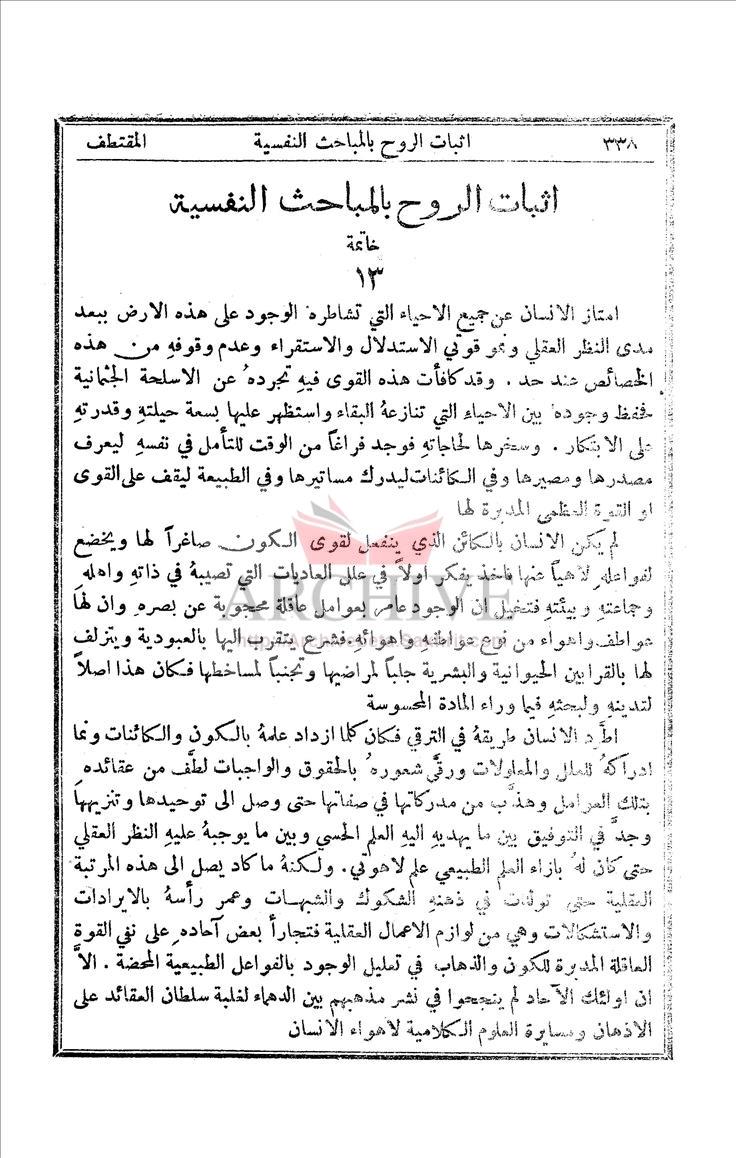 ٣٣٨ اثبات الروح بالمباحث النفسية المقتطف
اثبات الروح بالمباحث النفسية
خاتمة
١٣
امتاز الانسان عن جميع الاحياء التي تشاطره الوجود على هذه الارض ببعد
مدى النظر العقلي ونمو قوتي الاستدلال والاستقراء وعدم وقوفهِ من هذه
الخصائص عند حد . وقد كافأت هذه القوى فيهِ تجردهُ عن الاسلحة الجثمانية
فحفظ وجودهُ بين الاحياء التي تنازعهُ البقاء واستظهر عليها بسعة حيلتهِ وقدرتهِ
على الابتكار . وسخرها لحاجاتهِ فوجد فراغاً من الوقت للتأمل في نفسهِ ليعرف
مصدرها ومصيرها وفي الكائنات ليدرك مساتيرها وفي الطبيعة ليقف على القوى
او القوة العظمى المدبرة لها
لم يكن الانسان بالكائن الذي ينفعل لقوى الكون صاغراً لها ويخضع
لفواعلهِ لاهياً عنها فاخذ يفكر اولاً في علل العاديات التي تصيبهُ في ذاتهِ واهلهِ
وجماعتهِ وبيئتهِ فتخيل ان الوجود عامر بعوامل عاقلة محجوبة عن بصرهِ وان لها
عواطف واهواء من نوع عواطفهِ واهوائهِ فشرع يتقرب اليها بالعبودية ويتزلف
لها بالقرابين الحيوانية والبشرية جلباً لمراضيها وتجنباً لمساخطها فكان هذا اصلاً
لتدينهِ ولبحثهِ فيما وراء المادة المحسوسة
اطَّرد الانسان طريقهُ في الترقي فكان كلما ازداد علمهُ بالكون والكائنات ونما
ادراكهُ للعلل والمعلولات ورقَّى شعورهُ بالحقوق والواجبات لطَّف من عقائدهِ
بتلك العوامل وهذَّب من مدركاتها في صفاتها حتى وصل الى توحيدها وتنزيهها
وجدَّ في التوفيق بين ما يهديهِ اليهِ العلم الحسي وبين ما يوجبهُ عليهِ النظر العقلي
حتى كان لهُ بازاء العلم الطبيعي علم لاهوتي . ولكنهُ ما كاد يصل الى هذه المرتبة
العقلية حتى تولدت في ذهنهِ الشكوك والشبهات وعمر رأسهُ بالايرادات
والاستشكالات وهي من لوازم الاعمال العقلية فتجارأ بعض آحادهِ على نفي القوة
العاقلة المدبرة للكون والذهاب في تعليل الوجود بالفواعل الطبيعية المحضة . الاَّ
ان اولئك الآحاد لم ينجحوا في نشر مذهبهم بين الدهماء لغلبة سلطان العقائد على
الاذهان ومسايرة العلوم الكلامية لاهواء الانسان
ARCHIVE